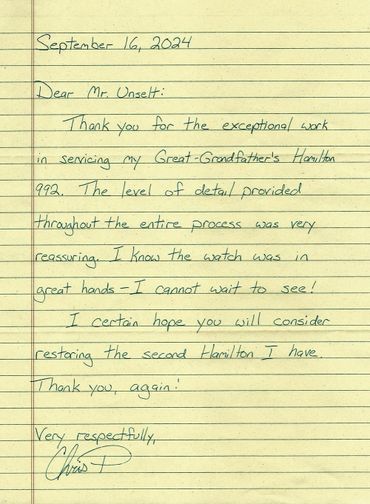 September 16, 2024
Dear Mr. Unselt:
Thank you for the exceptional work
in servicing my Great-Grandfather's Hamilton
992. The level of detail provided
throughout the entire process was very
reassuring. I know the watch was in
great hands – I cannot wait to see!
I certain hope you will consider
restoring the second Hamilton I have.
Thank you, again!
Very respectfully,
Chris P